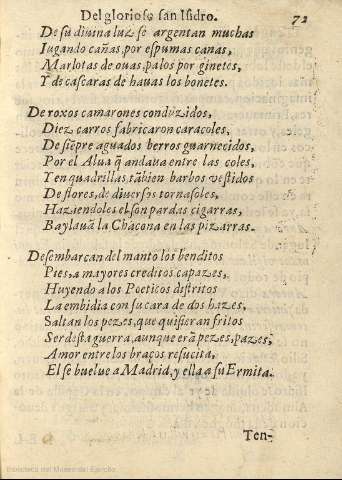 Del glorioso san Isidro. 72
De su diuina luz se argentan muchas
Iugando cañas, por espumas canas,
Marlotas de ouas, palos por ginetes,
Y de cascaras de hauas los bonetes.
De roxos camarones conduzidos,
Diez carros fabricaron caracoles,
De siẽpre aguados berros guarnecidos,
Por el Alua q̃ andaua entre las coles,
Y en quadrillas, tãbien barbos vestidos
De flores, de diuersos tornasoles,
Haziendoles el son pardas cigarras,
Baylauã la Chacona en las pizarras.
Desembarcan del manto los benditos
Pies, a mayores creditos capazes,
Huyendo a los Poeticos distritos
La embidia con su cara de dos hazes,
Saltan los pezes, que quisieran fritos
Ser desta guerra, aunque erã pezes, pazes,
Amor entre los braços resucita,
El se buelue a Madrid, y ella a su Ermita.
Ten-
Biblioteca del Museo del Ejército